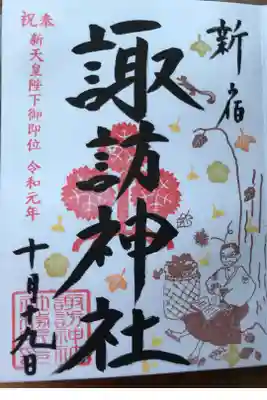 新宿
諏訪神社
奉祝 新天皇陛下御即位 令和元年
十月十九日